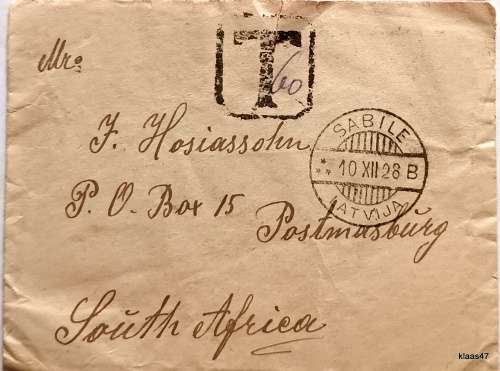 Mr:
T
60
F. Hosiassohn
P. O. Box 15
Postmasburg
South Africa
SABILE
10 XII 28 B
LATVIJA
klaas47